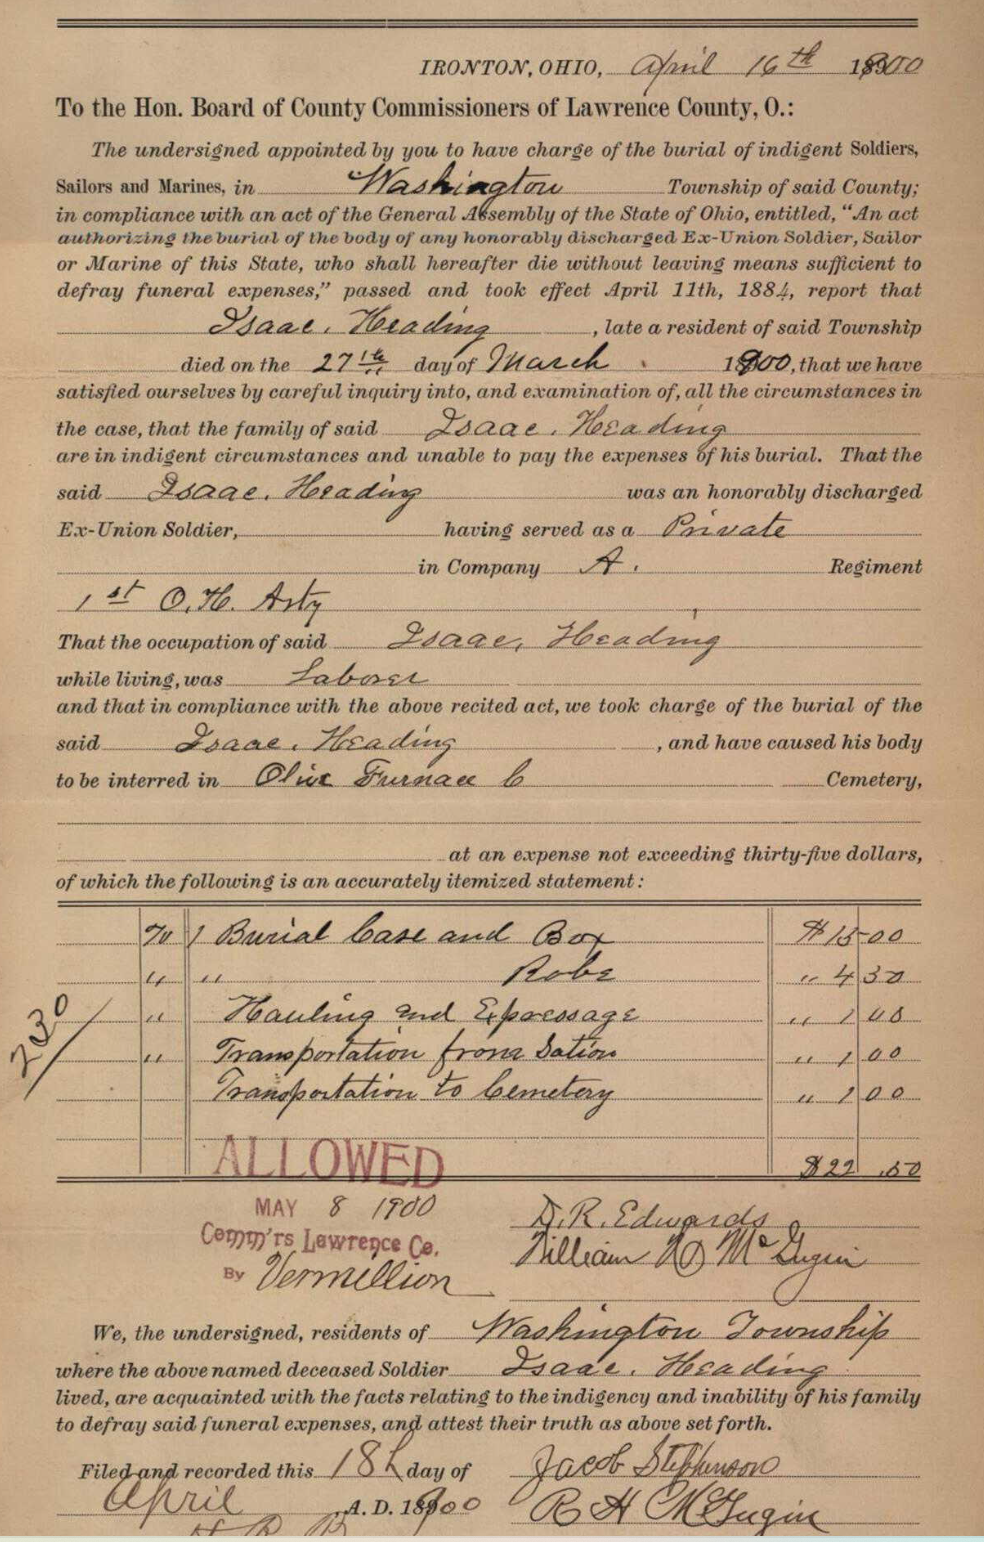 IRONTON, OHIO, April 16th 1900
To the Hon. Board of County Commissioners of Lawrence County, O.:
The undersigned appointed by you to have charge of the burial of indigent Soldiers,
Sailors and Marines, in Washington Township of said County;
in compliance with an act of the General Assembly of the State of Ohio, entitled, "An act
authorizing the burial of the body of any honorably discharged Ex-Union Soldier, Sailor
or Marine of this State, who shall hereafter die without leaving means sufficient to
defray funeral expenses," passed and took effect April 11th, 1884, report that
Isaac. Heading, late a resident of said Township
died on the 27th day of March 1900, that we have
satisfied ourselves by careful inquiry into, and examination of, all the circumstances in
the case, that the family of said Isaac. Heading
are in indigent circumstances and unable to pay the expenses of his burial. That the
said Isaac. Heading was an honorably discharged
Ex-Union Soldier, having served as a Private
in Company A. Regiment
1st O. H. Arty
That the occupation of said Isaac, Heading
while living, was Laborer
and that in compliance with the above recited act, we took charge of the burial of the
said Isaac. Heading, and have caused his body
to be interred in Olive Furnace C Cemetery,
at an expense not exceeding thirty-five dollars,
of which the following is an accurately itemized statement:
To 1 Burial Case and Box $15 00
" " Robe " 4 30
" Hauling and Expressage " 1 00
" Transportation from Sation " 1 00
Transportation to Cemetery " 1 00
2230
$22 .50
ALLOWED
MAY 8 1900
Comm'rs Lawrence Co.
By Vermillion
D. R. Edwards
William McGugin
We, the undersigned, residents of Washington Township
where the above named deceased Soldier Isaac. Heading
lived, are acquainted with the facts relating to the indigency and inability of his family
to defray said funeral expenses, and attest their truth as above set forth.
Filed and recorded this 18th day of
April A. D. 1900
Jacob Stephenson
R H McGugin